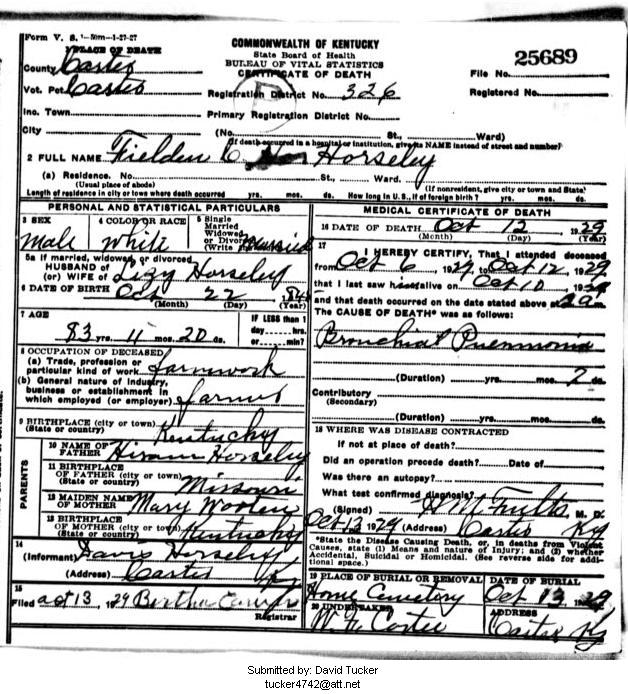 Form V. S. 1-50m-1-27-27
COMMONWEALTH OF KENTUCKY
State Board of Health
BUREAU OF VITAL STATISTICS
CERTIFICATE OF DEATH
25689
File No.
Registered No.
PLACE OF DEATH
County Carter
Vot. Pct. Carter
Registration District No. 326
Inc. Town
Primary Registration District No.
City (No. St., Ward)
(If death occurred in a hospital or institution, give its NAME instead of street and number)
2 FULL NAME Fielden C. Horseley
(a) Residence. No. St., Ward.
(Usual place of abode) (If nonresident, give city or town and State)
Length of residence in city or town where death occurred yrs. mos. ds. How long in U. S., if of foreign birth? yrs. mos. ds.
PERSONAL AND STATISTICAL PARTICULARS
3 SEX
Male
4 COLOR OR RACE
White
5 Single
Married
Widowed
or Divorced
(Write the word) Married
5a If married, widowed or divorced
HUSBAND OF
(or) WIFE OF Lizy Horseley
6 DATE OF BIRTH Oct 22
(Month) (Day) (Year)
7 AGE
83 yrs. 11 mos. 20 ds.
IF LESS than 1
day hrs.
or min?
8 OCCUPATION OF DECEASED
(a) Trade, profession or
particular kind of work farmwork
(b) General nature of industry,
business or establishment in
which employed (or employer) farmer
9 BIRTHPLACE (city or town)
(State or country) Kentucky
PARENTS
10 NAME OF
FATHER Hiram Horseley
11 BIRTHPLACE
OF FATHER (city or town)
(State or country) Missouri
12 MAIDEN NAME
OF MOTHER Mary Wooten
13 BIRTHPLACE
OF MOTHER (city or town)
(State or country) Kentucky
14
(Informant) Davis Horseley
(Address) Carter Ky
15
Filed Oct 13, 1929 Bertha
Registrar
MEDICAL CERTIFICATE OF DEATH
16 DATE OF DEATH Oct 12 1929
(Month) (Day) (Year)
17
I HEREBY CERTIFY, That I attended deceased
from Oct 6, 1929, to Oct 12, 1929
that I last saw h alive on Oct 10, 1929
and that death occurred on the date stated above at 2 a m.
The CAUSE OF DEATH* was as follows:
Bronchial Pneumonia
(Duration) yrs. mos. 2 ds.
Contributory
(Secondary)
(Duration) yrs. mos. ds.
18 WHERE WAS DISEASE CONTRACTED
If not at place of death?
Did an operation precede death? Date of
Was there an autopsy?
What test confirmed diagnosis?
(Signed) H M Fults M. D.
Oct 13 1929 (Address) Carter Ky
*State the Disease Causing Death, or, in deaths from Violent
Causes, state (1) Means and nature of Injury; and (2) whether
Accidental, Suicidal or Homicidal. (See reverse side for addi-
tional space.)
19 PLACE OF BURIAL OR REMOVAL
Home Cemetery
DATE OF BURIAL
Oct 13 1929
20 UNDERTAKER
ADDRESS
Carter Ky
Submitted by: David Tucker
tucker4742@att.net